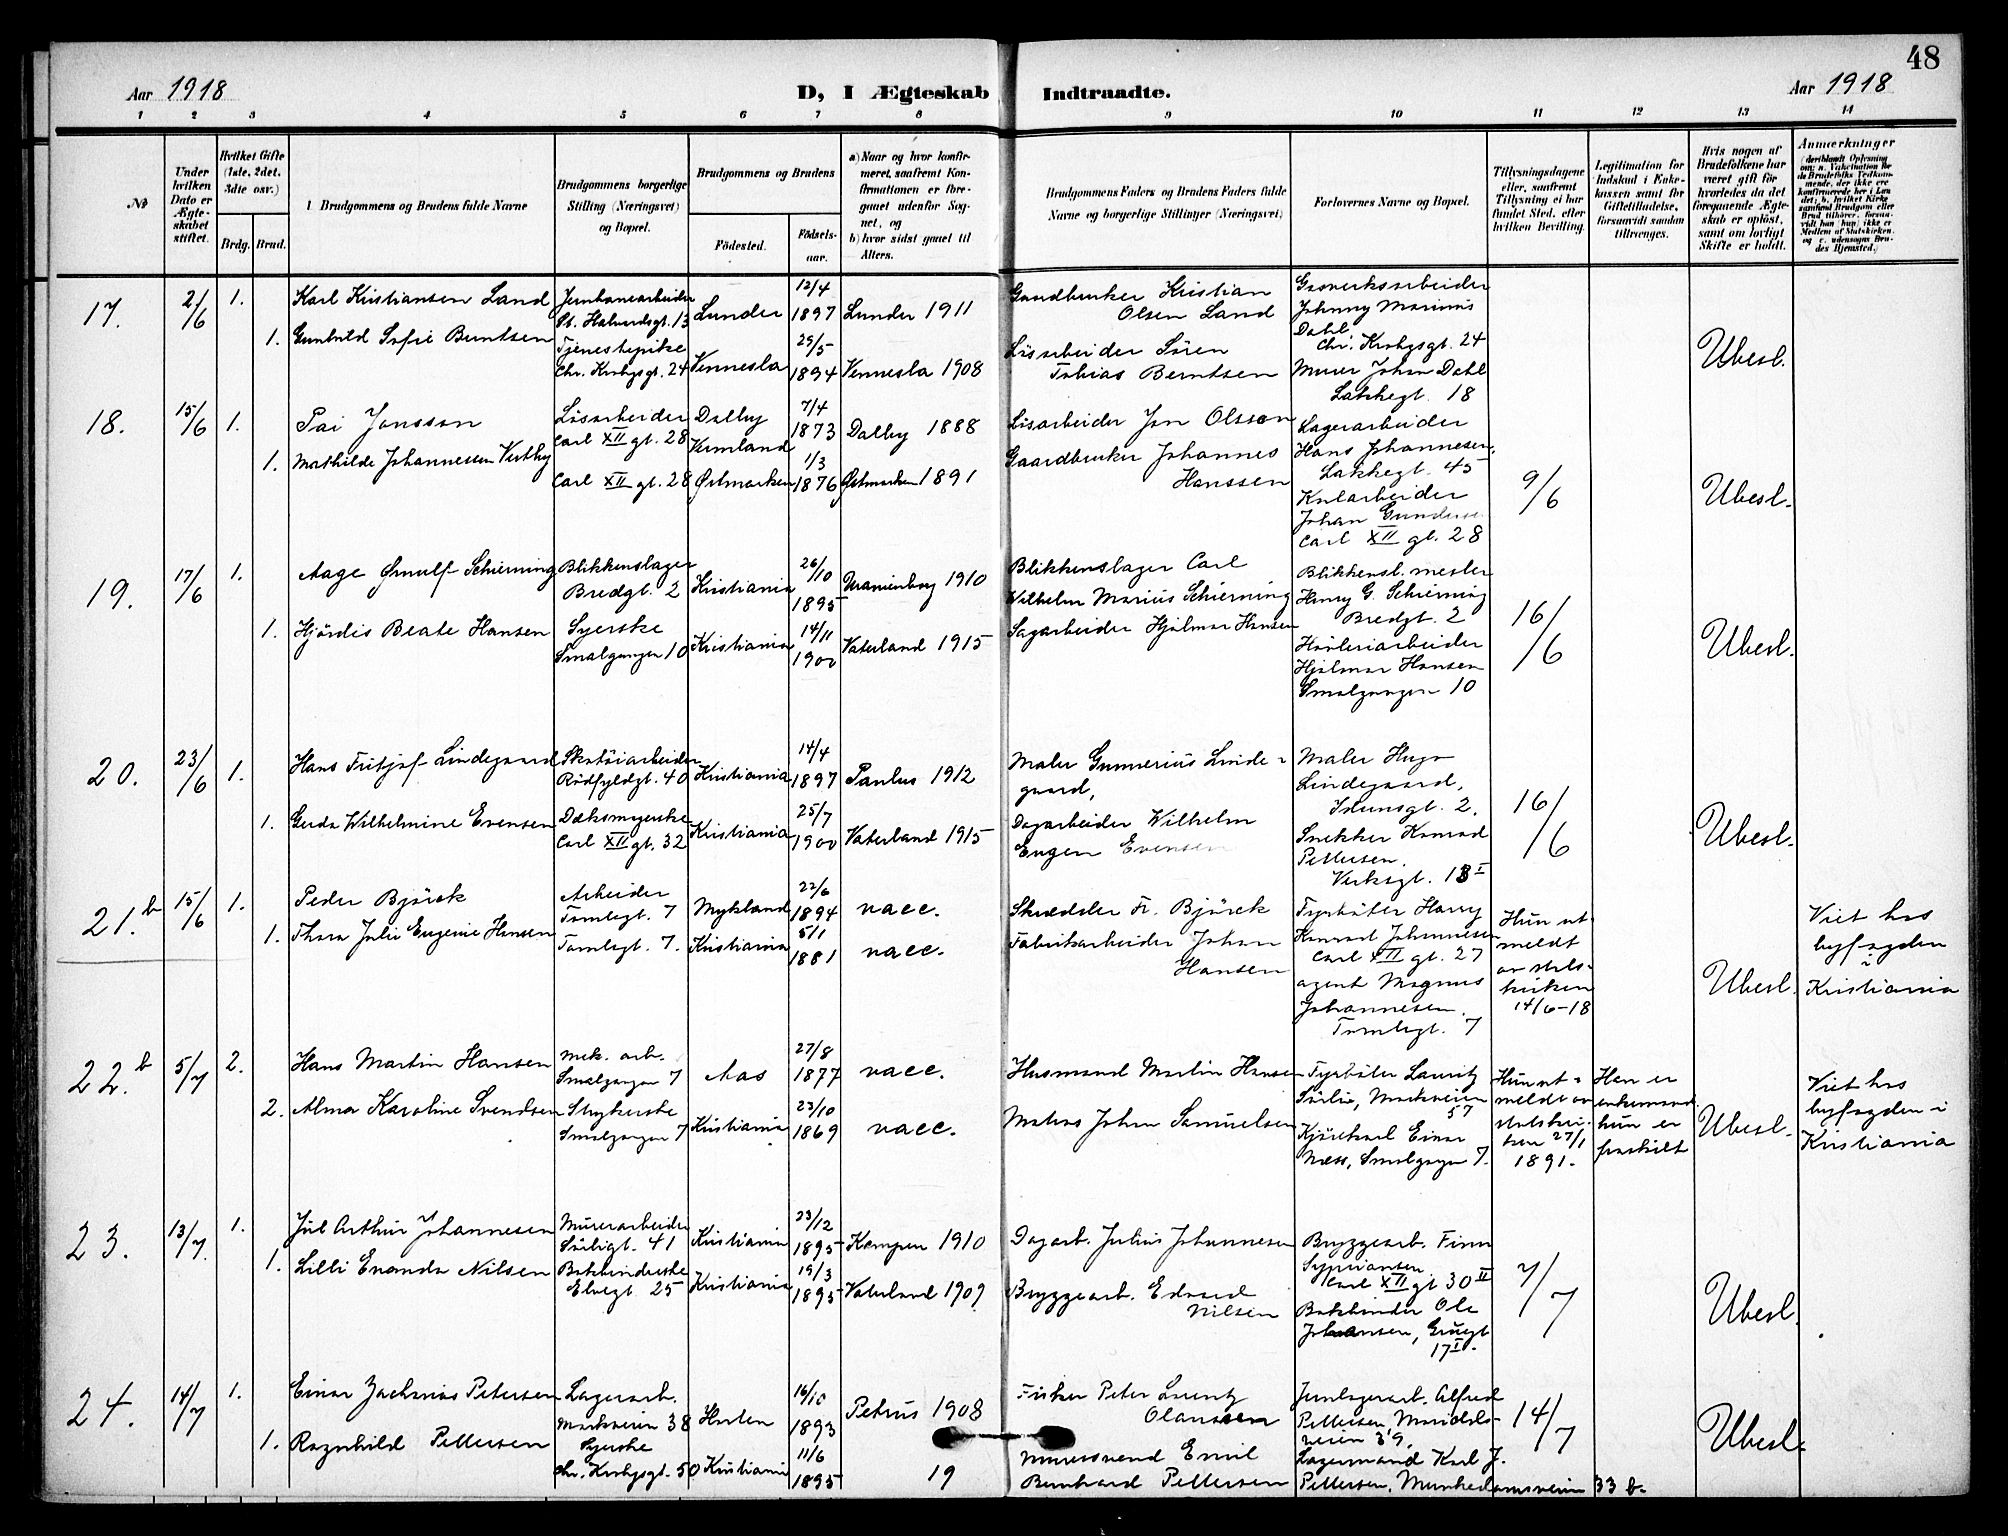 48
Aar 1918
D, I Ægteskab Indtraadte.
Aar 1918
1 2 3 4 5 6 7 8 9 10 11 12 13 14
№
Under hvilken Dato er Ægteskabet stiftet.
Hvilket Gifte (1ste, 2det, 3dte osv.)
Brdg. Brud.
Brudgommens og Brudens fulde Navne
Brudgommens borgerlige Stilling (Næringsvei) og Bopæl.
Brudgommens og Brudens
Fødested.
Fødselsaar.
a) Naar og hvor konfirmeret, saafremt Konfirmationen er foregaaet udenfor Sognet, og
b) hvor sidst gaaet til Alters.
Brudgommens Faders og Brudens Faders fulde Navne og borgerlige Stillinger (Næringsvei)
Forlovernes Navne og Bopæl.
Tillysningsdagene eller, saafremt Tillysning ei har fundet Sted, efter hvilken Bevilling.
Legitimation for Indskud i Enkekassen samt for Giftetilladelse, forsaavidt saadan tiltrænges.
Hvis nogen af Brudefolkene har været gift før hvorledes da det foregaaende Ægteskab er opløst, samt om lovligt Skifte er holdt.
Anmærkninger
17. 2/6 1. Karl Kristiansen Land
Jernbanearbeider St. Halvardsgt. 13
Lunder 12/4 1897 Lunder 1911
Gaardbruker Kristian Olsen Land
Gasverksarbeider Johnny Marinius Dahl Chr. Krohgsgt. 24
1. Gunhild Sofie Berntsen
Tjenestepike Chr. Krohgsgt. 24
Vennesla 29/5 1894 Vennesla 1908
Løsarbeider Søren Tobias Berntsen
Murer Johan Dahl Lakkegt. 18
Ubesl.
18. 15/6 1. Pai Jonsson
Løsarbeider Carl XII gt. 28
Dalby Vermland 7/4 1873 Dalby 1888
Løsarbeider Jon Olsson
Lagerarbeider Hans Johannesen, Lakkegt. 45
1. Mathilde Johannesen Vestby
Carl XII gt. 28
Østmarken 1/3 1876 Østmarken 1891
Gaardbruker Johannes Hanssen
Kularbeider Johan Carl XII gt. 28
9/6
Ubesl.
19. 17/6 1. Aage Ørnulf Schierning
Blikkenslager Bredgt. 2
Kristiania 26/10 1895 Uranienborg 1910
Blikkenslager Carl Wilhelm Marius Schierning
Blikkensl. mester Henry G. Schierning Bredgt. 2
1. Hjördis Beate Hansen
Syerske Smalgangen 10
Kristiania 14/11 1900 Vaterland 1915
Sagarbeider Hjalmar Hansen
Høvleriarbeider Hjalmar Hansen Smalgangen 10
16/6
Ubesl.
20. 23/6 1. Hans Fritjof Lindegaard
Skotøiarbeider Rødfyldgt. 40
Kristiania 14/4 1897 Paulus 1912
Maler Gunnerius Lindegaard,
Maler Hugo Lindegaard, Idunsgt. 2.
1. Gerda Wilhelmine Evensen
Carl XII gt. 32
Kristiania 25/7 1900 Vaterland 1915
Dagarbeider Wilhelm Eugen Evensen
Snekker Konrad Pettersen. Verksgt. 13 I
16/6
Ubesl.
21. b 15/6 1. Peder Björck
Arbeider Tomtegt. 7
Mykland 22/6 1894 vacc.
Skrædder Fr. Björck
Fyrbøter Harry Konrad Johannesen Carl XII gt. 27
1. Thora Julie Eugenie Hansen
Tomtegt. 7.
Kristiania 5/1 1881 vacc.
Fabrikarbeider Johan Hansen
agent Magnus Johannesen. Tomtegt. 7
Hun utmeldt av statskirken 14/6-18
Ubesl.
Viet hos byfogden i Kristiania
22. b 5/7 2. Hans Martin Hansen
Mek. arb. Smalgangen 7
Aas 27/8 1877 vacc.
Husmand Martin Hansen
Fyrbøter Lauritz Sørlie, Markveien 57
2. Alma Karoline Svendsen
Strykerske Smalgangen 7
Kristiania 23/10 1869 vacc.
Matros Johan Samuelsen
Kjørekarl Einar Næss, Smalgangen 7.
Hun utmeldt av statskirken 27/1 1891.
Han er enkemand hun er fraskilt
Ubesl.
Viet hos byfogden i Kristiania
23. 13/7. 1. Jul Arthur Johannesen
Murerarbeider Sørligt. 41
Kristiania 23/12 1895 Kampen 1910
Dagarb. Julius Johannesen
Bryggearb. Finn Sypriansen Carl XII gt 30 II
1. Lilli Evanda Nilsen
Bokbinderske Elvegt 25
Kristiania 19/3 1895 Vaterland 1909
Bryggearb. Edvard Nilsen
Bokbinder Ole Johansen, 17 I.
7/7
Ubesl.
24. 14/7 1. Einar Zacharias Petersen
Lagerarb. Markveien 38
Horten 16/10 1893 Petrus 1908
Fisker Peter Lauritz Olanssen
Jernlagerarb. Alfred Pettersen, Maridalsveien 39.
1. Ragnhild Pettersen
Syerske Chr. Krohgsgt. 50
Kristiania 11/6 1895 19
Murersvend Emil Bernhard Pettersen
Lagermand Karl J. Pettersen, Munkedamsveien 33 b.
14/7
Ubesl.